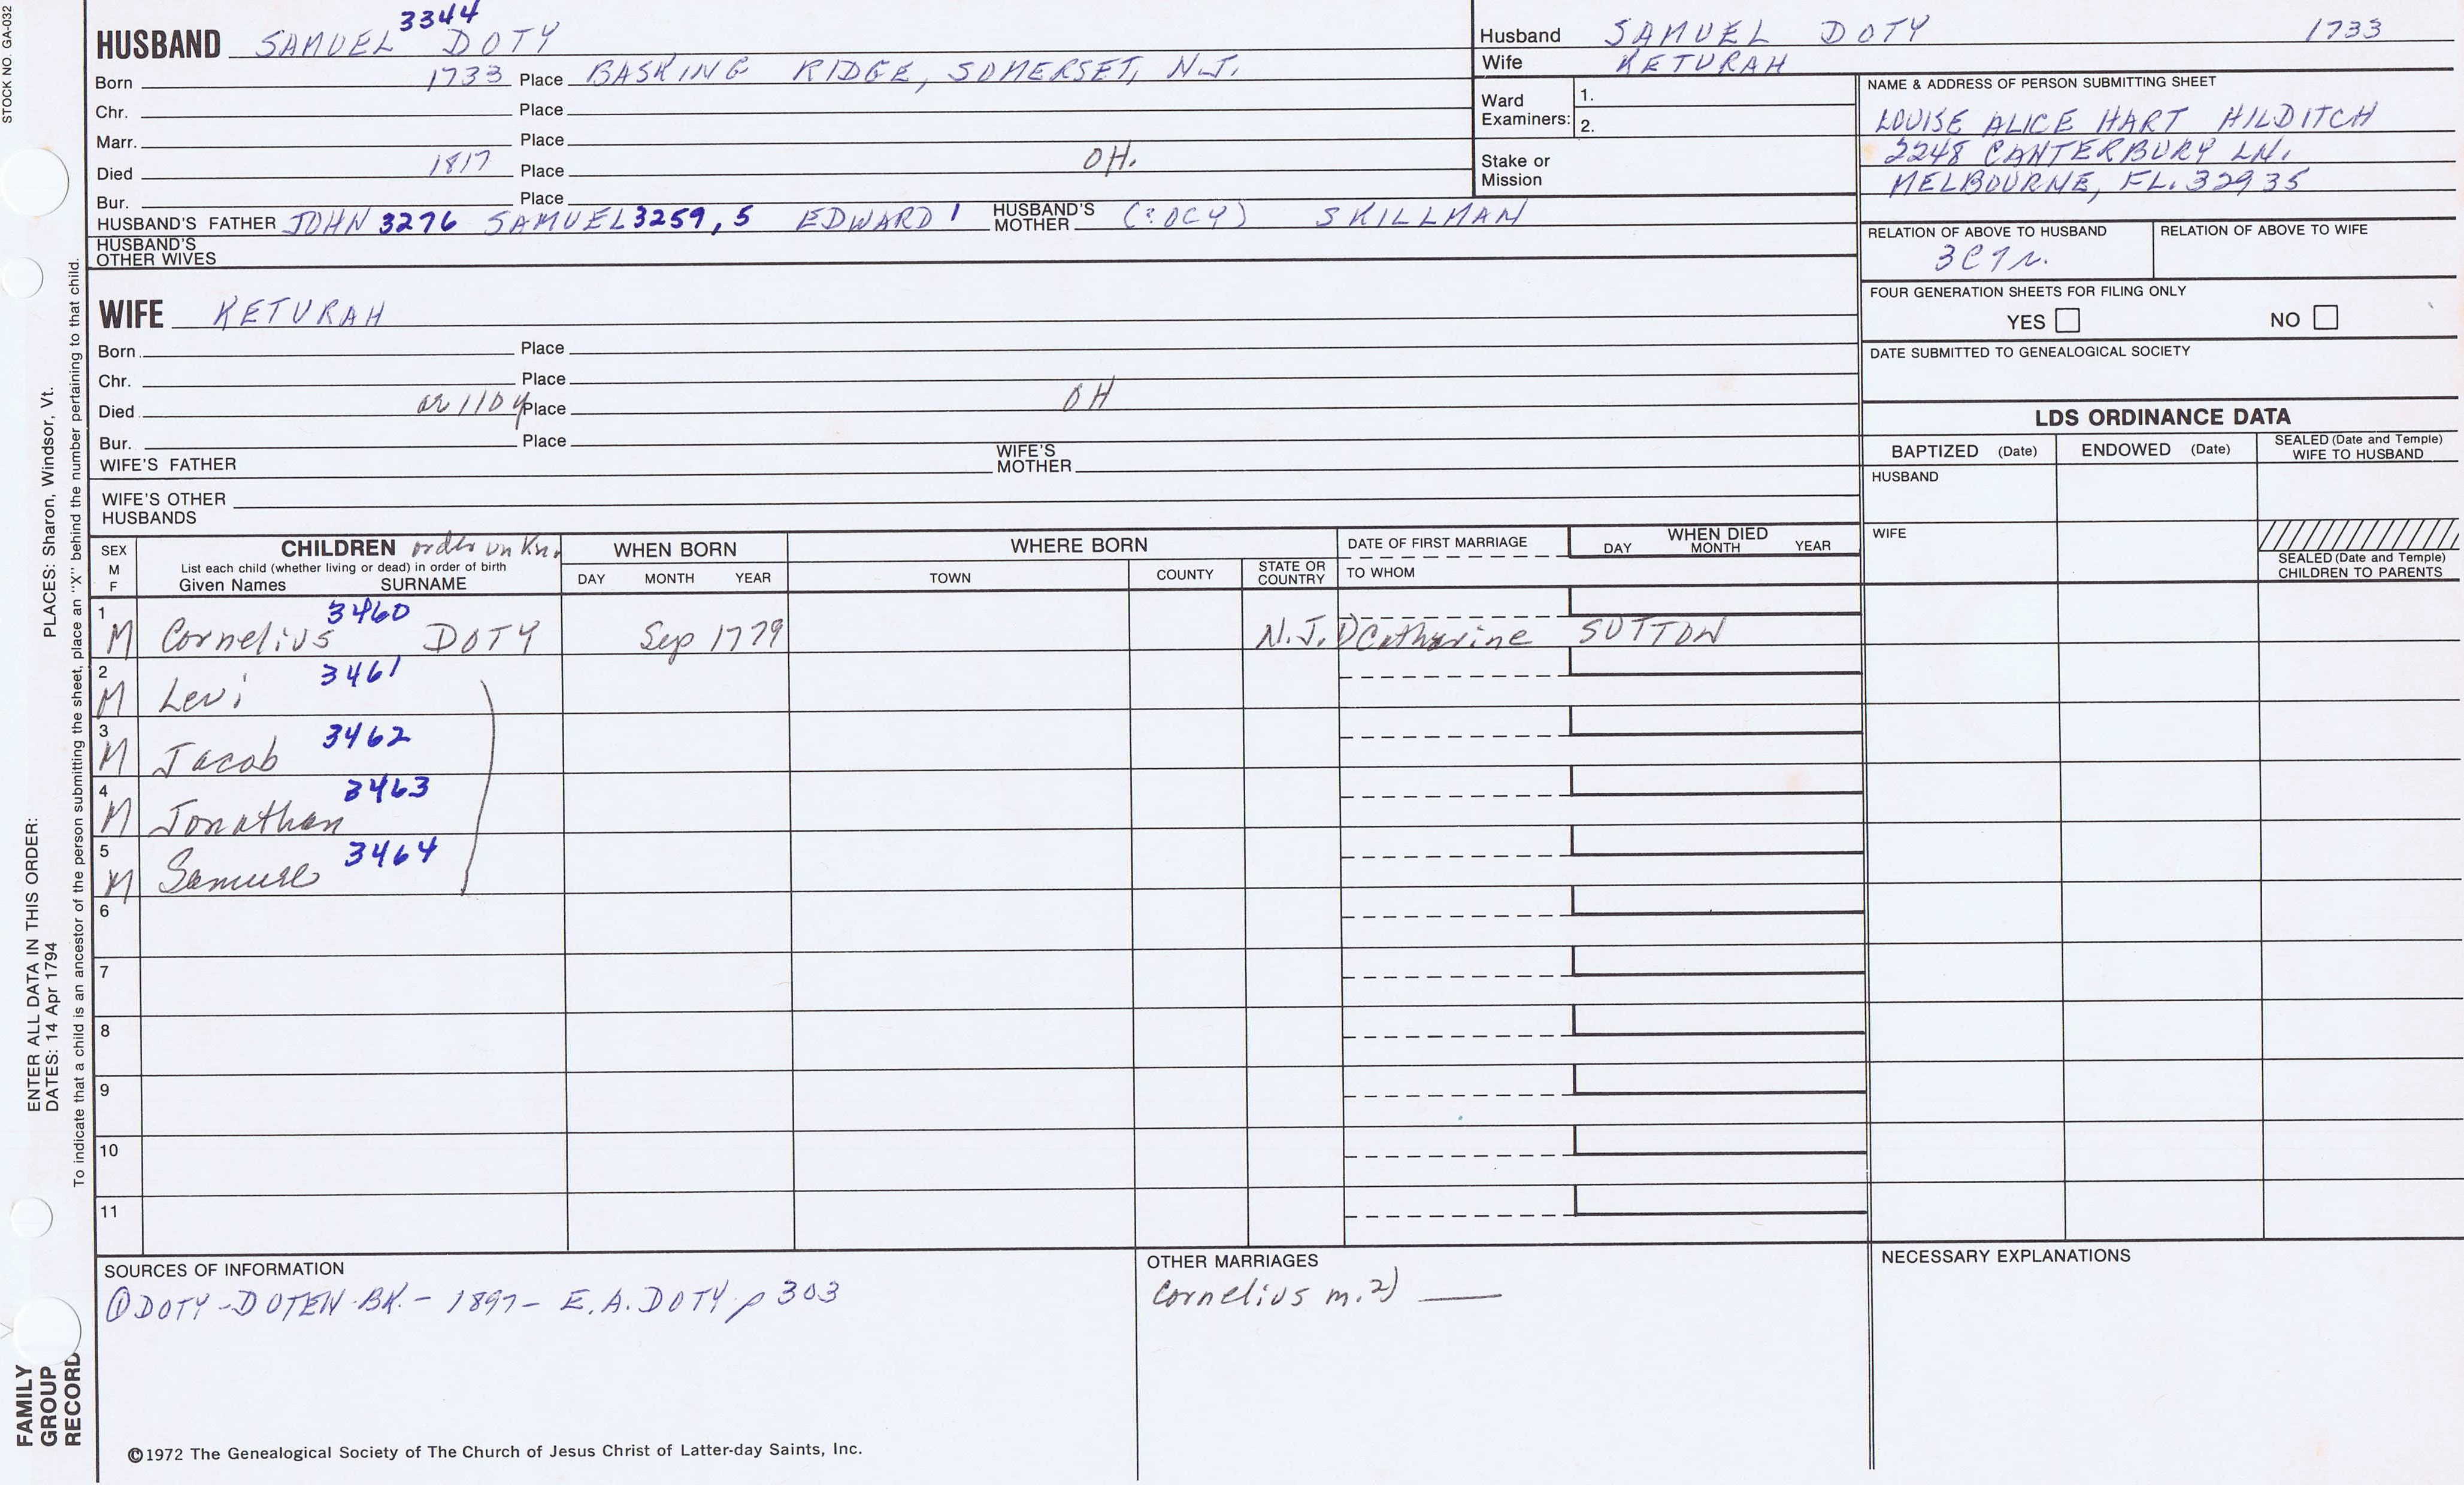 STOCK NO. GA-032
HUSBAND SAMUEL 3344 DOTY
Born 1733 Place BASKING RIDGE, SOMERSET, N.J.
Chr. Place
Marr. Place
Died 1817 Place OH.
Bur. Place
HUSBAND'S FATHER JOHN 3276 SAMUEL 3259, 5 EDWARD 1 HUSBAND'S MOTHER SKILLMAN
HUSBAND'S OTHER WIVES
Husband SAMUEL DOTY 1733
Wife KETURAH
Ward Examiners: 1.
2.
Stake or Mission
NAME & ADDRESS OF PERSON SUBMITTING SHEET
LOUISE ALICE HART HILDITCH
2248 CANTERBURY LN.
MELBOURNE, FL. 32935
RELATION OF ABOVE TO HUSBAND RELATION OF ABOVE TO WIFE
FOUR GENERATION SHEETS FOR FILING ONLY
YES NO
DATE SUBMITTED TO GENEALOGICAL SOCIETY
WIFE KETURAH
Born Place
Chr. Place
Died Place OH
Bur. Place
WIFE'S FATHER WIFE'S MOTHER
WIFE'S OTHER HUSBANDS
LDS ORDINANCE DATA
BAPTIZED (Date) ENDOWED (Date) SEALED (Date and Temple) WIFE TO HUSBAND
HUSBAND
WIFE
SEALED (Date and Temple) CHILDREN TO PARENTS
SEX M F
CHILDREN order unkn.
List each child (whether living or dead) in order of birth
Given Names SURNAME
WHEN BORN
DAY MONTH YEAR
WHERE BORN
TOWN COUNTY STATE OR COUNTRY
DATE OF FIRST MARRIAGE
TO WHOM
WHEN DIED
DAY MONTH YEAR
1 M Cornelius 3460 DOTY Sep 1779 N.J. Catharine SUTTON
2 M Levi 3461
3 M Jacob 3462
4 M Jonathan 3463
5 M Samuel 3464
6
7
8
9
10
11
SOURCES OF INFORMATION
① DOTY-DOTEN BK. - 1897 - E.A. DOTY p 303
OTHER MARRIAGES
Cornelius m. 2)
NECESSARY EXPLANATIONS
©1972 The Genealogical Society of The Church of Jesus Christ of Latter-day Saints, Inc.
FAMILY GROUP RECORD
ENTER ALL DATA IN THIS ORDER:
DATES: 14 Apr 1794 PLACES: Sharon, Windsor, Vt.
To indicate that a child is an ancestor of the person submitting the sheet, place an "X" behind the number pertaining to that child.